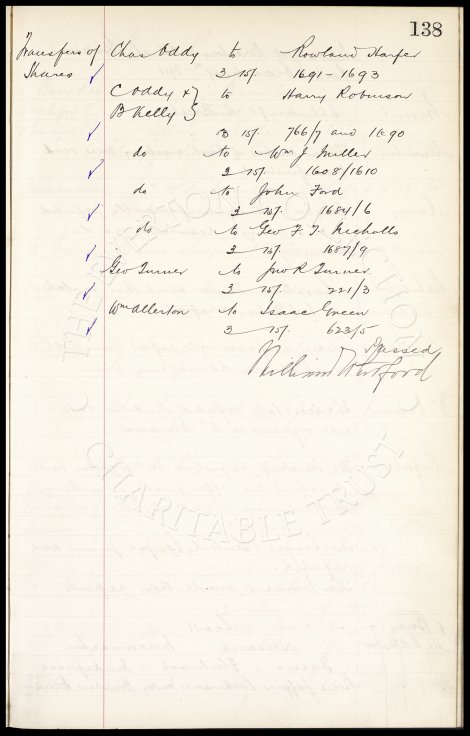 138
Transfers of Chas Oddy to Rowland Harper
Shares 3 15/. 1691-1693
C Oddy & } to Harry Robinson
B Kelly }
3 15/. 766/7 and 1690
do to Wm J Miller
3 15/. 1608/1610
do to John Ford
3 15/. 1684/6
do to Geo F. T. Nicholls
3 15/. 1687/9
Geo Turner to Jno R Turner
3 15/. 221/3
Wm Allerton to Isaac Green
3 15/. 623/5
Passed
William
THE EVERTON
CHARITABLE TRUST